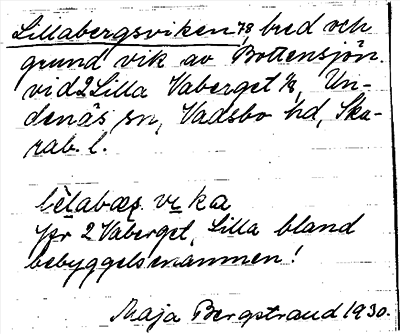 Lillabergsviken 78, bred och
grund vik av Bottensjön.
vid 2 Lilla Vaberget 1/8, Un-
denäs sn, Vadsbo hd, Ska-
rab. l.
lèlabæȩ. vi̱ka
Jfr 2 Vaberget, Lilla bland
bebyggelsenamnen!
Maja Bergstrand 1930.